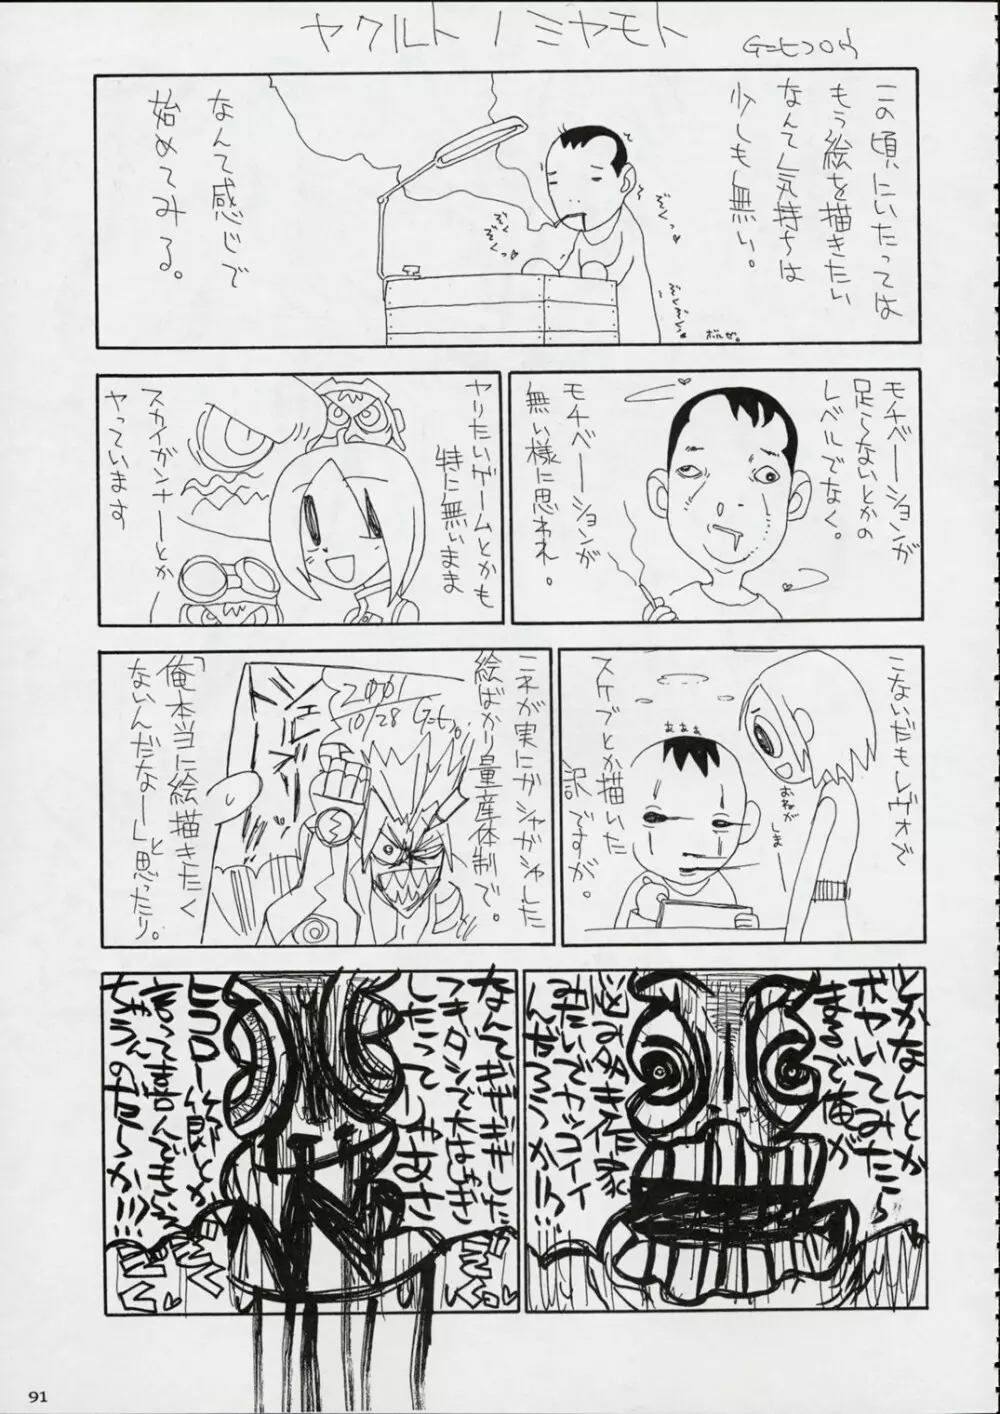 ヤクルトノミヤモト
この頃にいたっては
もう絵を描きたい
なんて気持ちは
少しも無い。
なんて感じで
始めてみる。
ボルゼ。
モチベーションが
足らないとかの
レベルでなく。
モチベーションが
無い様に思われ。
ヤリたいゲームとかも
特に無いまま
スカイガンナーとか
ヤっています
こないだもレヴォで
スケブとか描いた
訳ですが。
ああぁ
おねが
しまー
これが実にガシャガシャした
絵ばかり量産体制で。
2001
10/28
「俺本当に絵描きたく
ないんだなー」と
思ったり。
とかなんとか
ボヤいてみたら
まるで俺が
悩み多き作家
みたいでカッコイイ
んだろうか!!!
なんてギギギした
つきダシで大はしゃぎ
したってしゃあさ
ヒコロー節とか
言って喜んでも
ちゃうのだろうか!!!
91